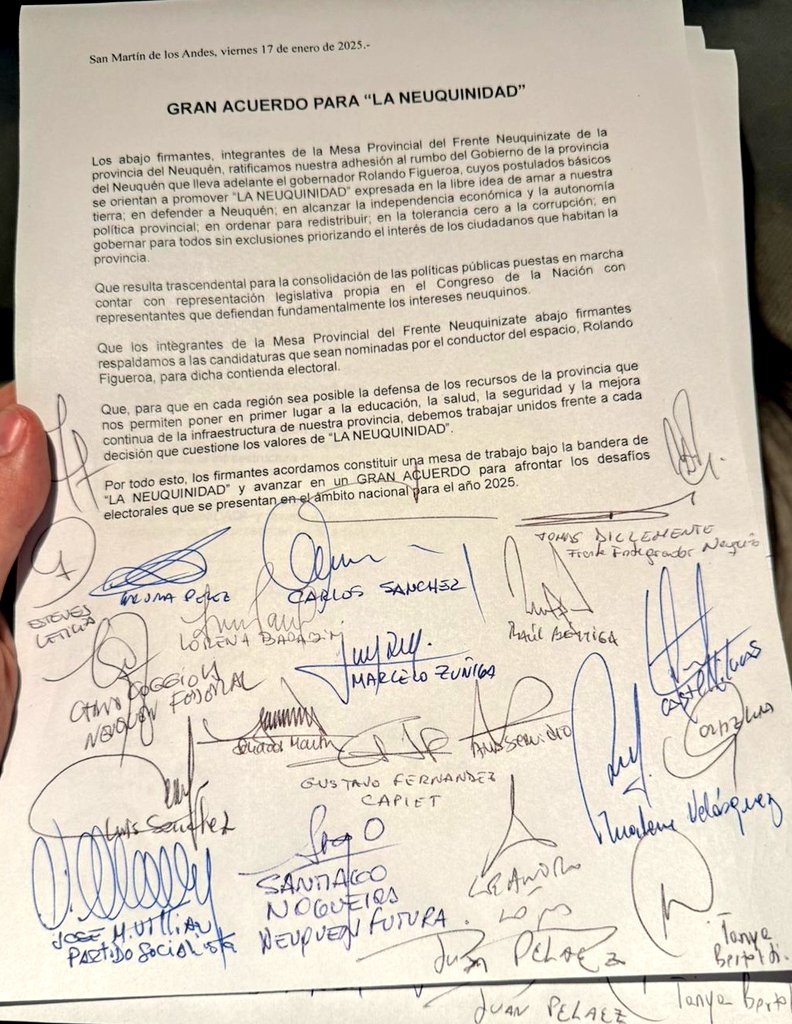 San Martín de los Andes, viernes 17 de enero de 2025.-
GRAN ACUERDO PARA “LA NEUQUINIDAD”
Los abajo firmantes, integrantes de la Mesa Provincial del Frente Neuquinizate de la
provincia del Neuquén, ratificamos nuestra adhesión al rumbo del Gobierno de la provincia
del Neuquén que lleva adelante el gobernador Rolando Figueroa, cuyos postulados básicos
se orientan a promover “LA NEUQUINIDAD” expresada en la libre idea de amar a nuestra
tierra; en defender a Neuquén; en alcanzar la independencia económica y la autonomía
política provincial; en ordenar para redistribuir; en la tolerancia cero a la corrupción; en
gobernar para todos sin exclusiones priorizando el interés de los ciudadanos que habitan la
provincia.
Que resulta trascendental para la consolidación de las políticas públicas puestas en marcha
contar con representación legislativa propia en el Congreso de la Nación con
representantes que defiendan fundamentalmente los intereses neuquinos.
Que los integrantes de la Mesa Provincial del Frente Neuquinizate abajo firmantes
respaldamos a las candidaturas que sean nominadas por el conductor del espacio, Rolando
Figueroa, para dicha contienda electoral.
Que, para que en cada región sea posible la defensa de los recursos de la provincia que
nos permiten poner en primer lugar a la educación, la salud, la seguridad y la mejora
continua de la infraestructura de nuestra provincia, debemos trabajar unidos frente a cada
decisión que cuestione los valores de “LA NEUQUINIDAD”.
Por todo esto, los firmantes acordamos constituir una mesa de trabajo bajo la bandera de
“LA NEUQUINIDAD” y avanzar en un GRAN ACUERDO para afrontar los desafíos
electorales que se presentan en el ámbito nacional para el año 2025.
Frente Integrador Neuquino
PEREZ
CARLOS SANCHEZ
ESTEVES
LETICIA
LORENA
RAÚL
MARCELO ZUÑIGA
NEUQUEN FEDERAL
GUSTAVO FERNANDEZ
CAPIET
Luis Sanchez
Velásquez
SANTIAGO
NOGUEIRA
NEUQUEN FUTURA.
LEANDRO
JOSE M. VILLIAN
PARTIDO SOCIALISTA
PELAEZ
Tanya
Bertoldi.
JUAN PELAEZ
Tanya